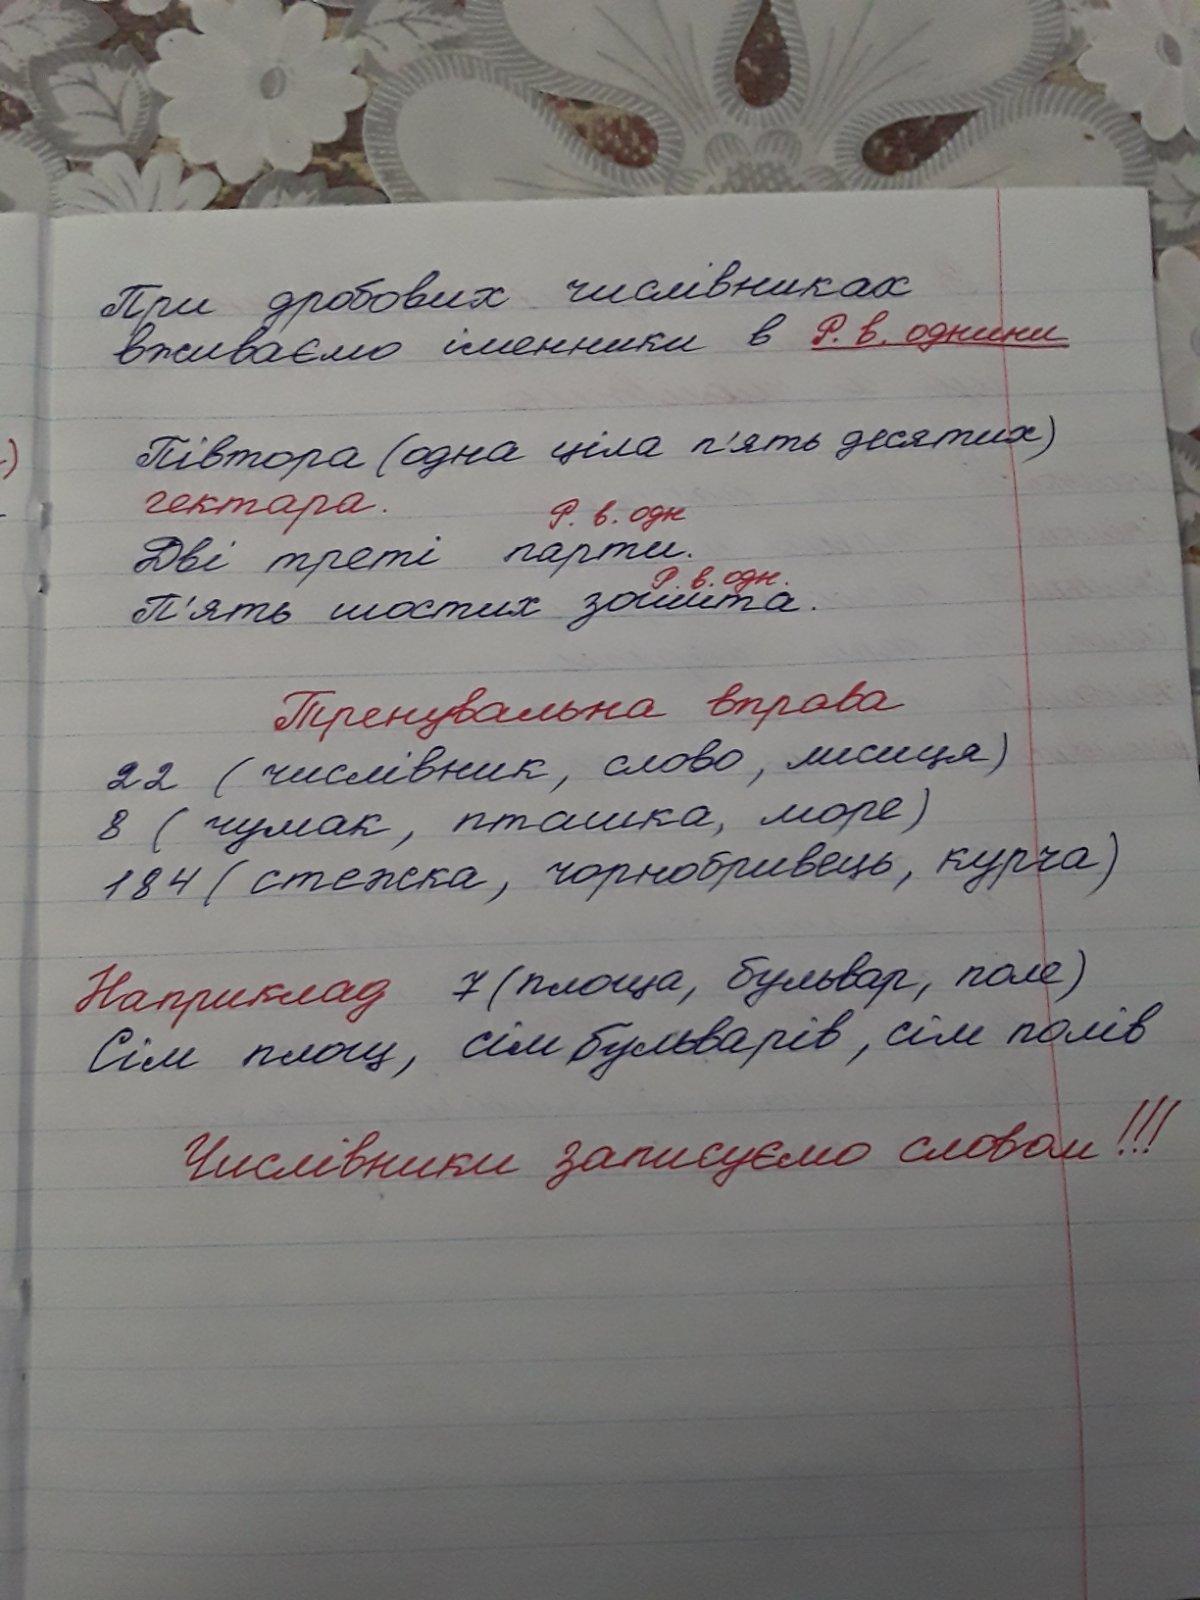 При дробових числівниках
вживаємо іменники в Р. в. однини
Півтора (одна ціла п'ять десятих)
гектара.
Р. в. одн
Дві треті парти.
Р. в. одн.
П'ять шостих зошита.
Тренувальна вправа
22 (числівник, слово, лисиця)
8 (чумак, пташка, море)
184 (стежка, чорнобривець, курча)
Наприклад 7 (площа, бульвар, поле)
Сім площ, сім бульварів, сім полів
Числівники записуємо словом!!!